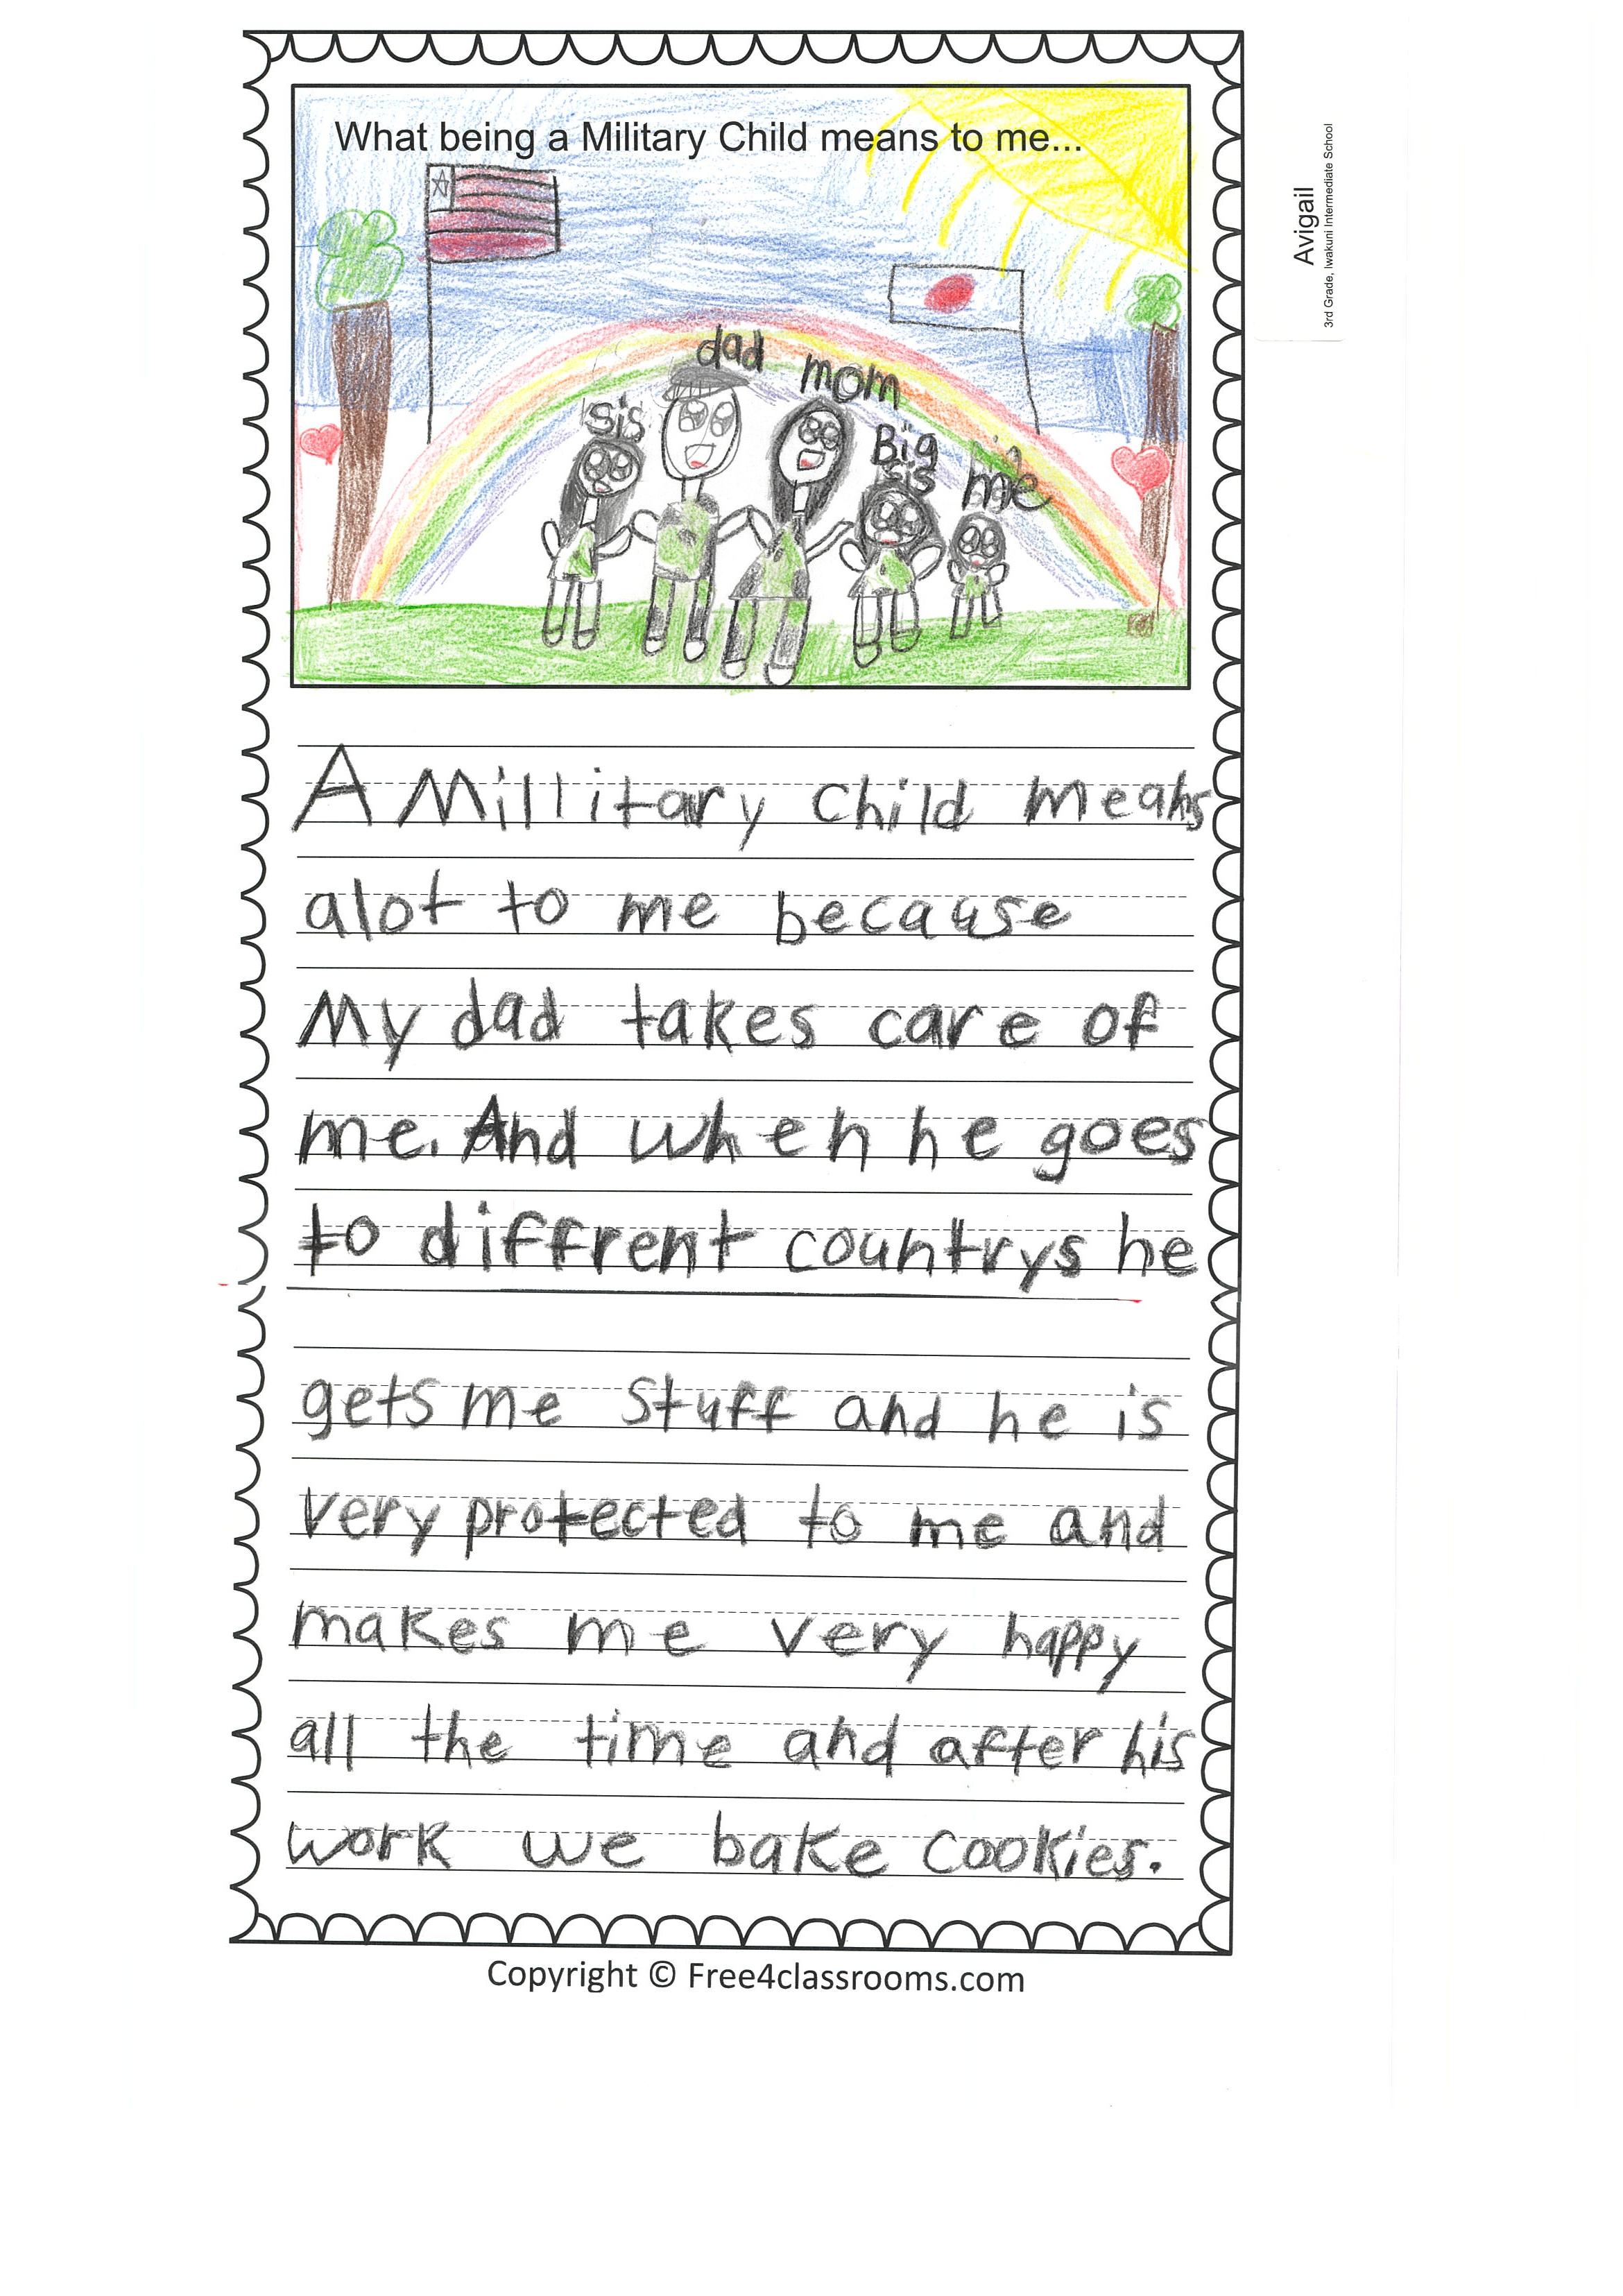 What being a Military Child means to me...
dad
mom
sis
Big
sis
me
A Millitary child means
alot to me because
My dad takes care of
me. And when he goes
to diffrent countrys he
gets me stuff and he is
very protected to me and
makes me very happy
all the time and after his
work we bake cookies.
Copyright © Free4classrooms.com
Avigail
3rd Grade, Iwakuni Intermediate School